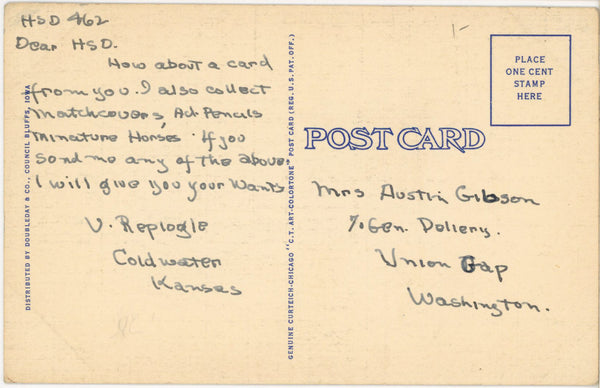 HSD 462
Dear HSD.
How about a card
from you. I also collect
Matchcovers, Ad. Pencils
Minature Horses. If you
Send me any of the above
I will give you your Wants
V. Replogle
Coldwater
Kansas
1-
PLACE
ONE CENT
STAMP
HERE
POST CARD
Mrs Austin Gibson
% Gen. Delivery.
Union Gap
Washington.
DISTRIBUTED BY DOUBLEDAY & CO., COUNCIL BLUFFS, IOWA
GENUINE CURTEICH-CHICAGO "C.T. ART-COLORTONE" POST CARD (REG. U.S. PAT. OFF.)